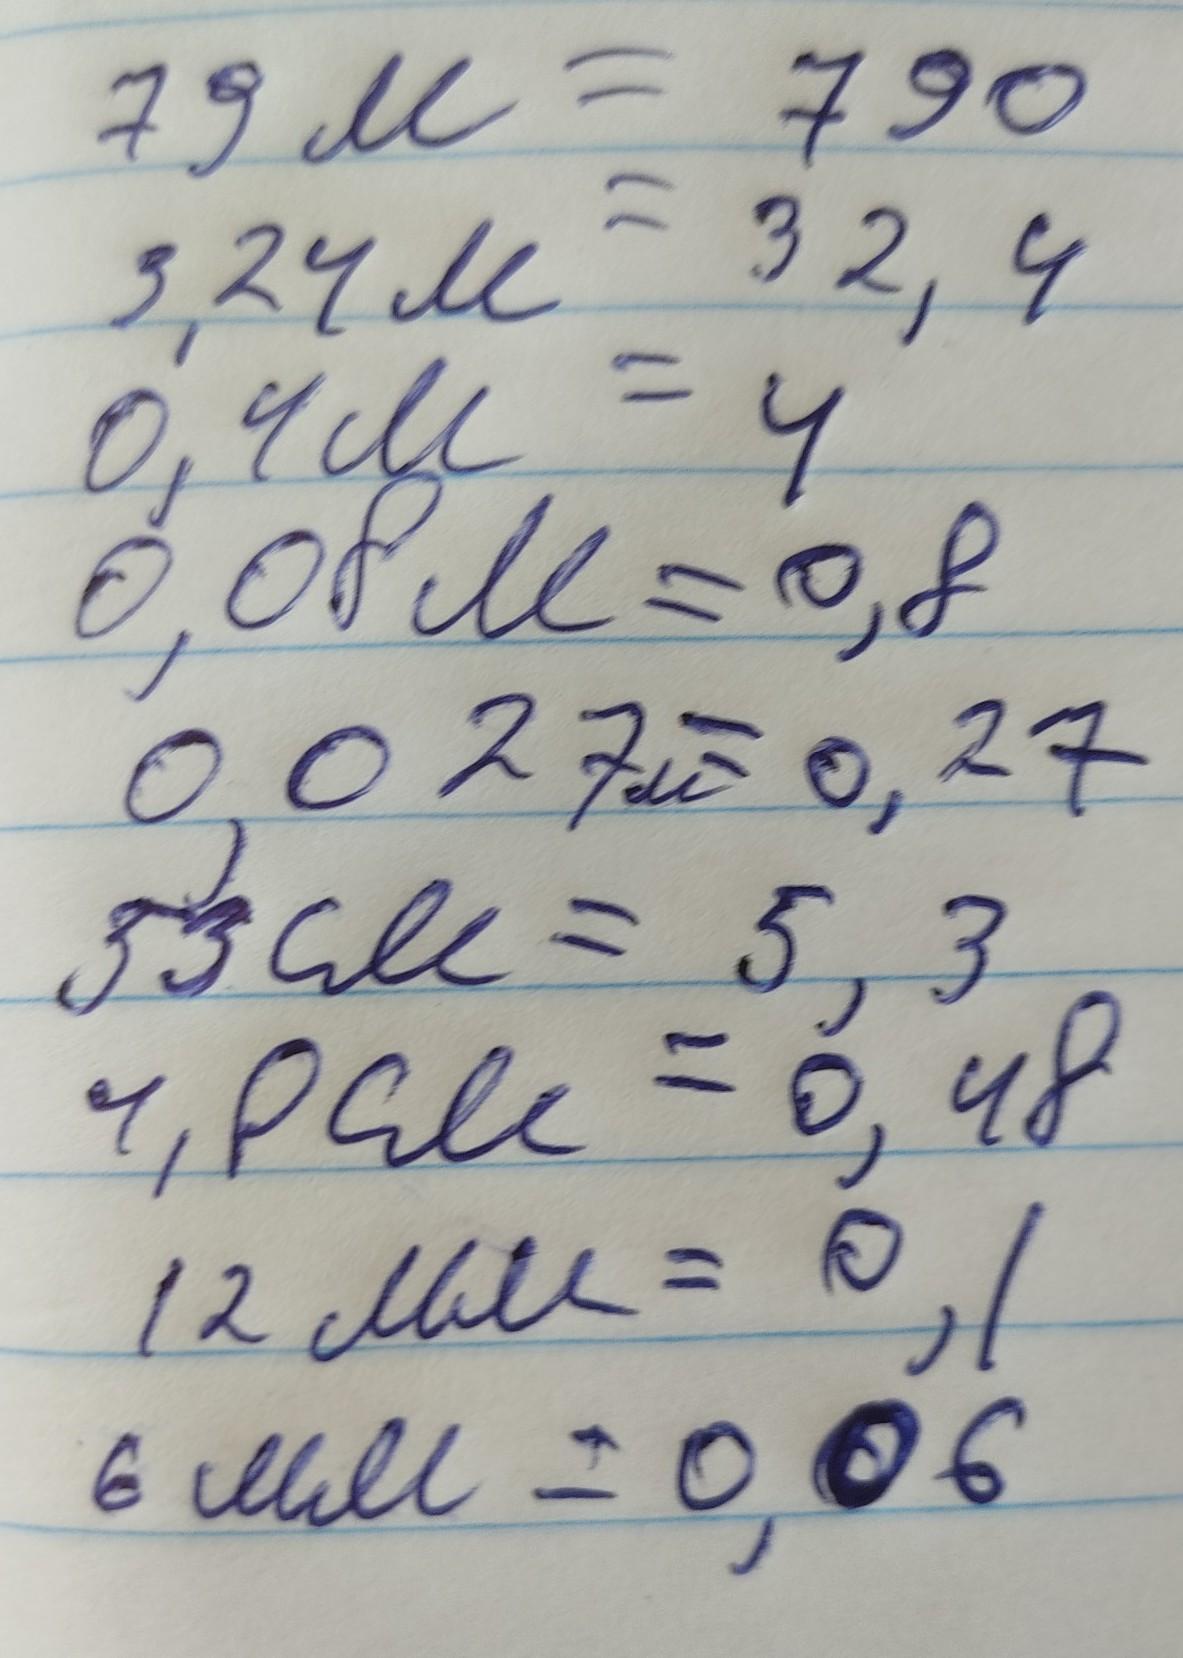 79 м = 790
3,24 м = 32,4
0,4 м = 4
0,08 м = 0,8
0,027 м = 0,27
53 см = 5,3
4,8 см = 0,48
12 мм = 0,1
6 мм = 0,06